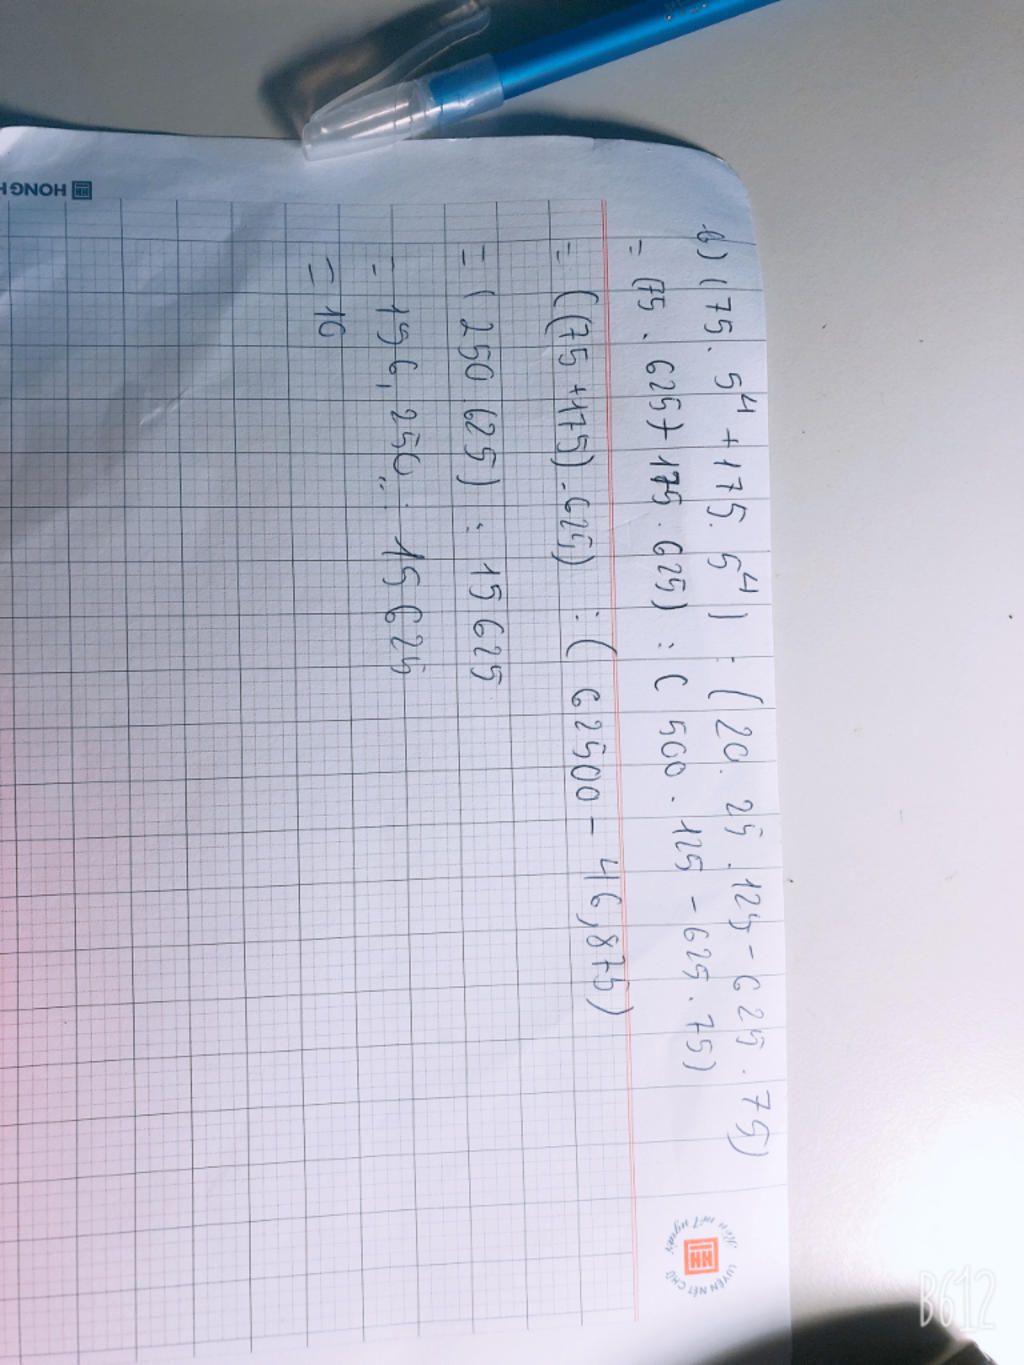 b) (75. 5⁴ + 175. 5⁴) : (20. 25. 125 - 625. 75)
= (75. 625 + 175. 625) : (500. 125 - 625. 75)
= ((75 + 175). 625) : (62500 - 46,875)
= (250. 625) : 15625
= 156, 250 : 15625
= 10
HONG H
LUYỆN NÉT CHỮ
Rèn nết người
B612